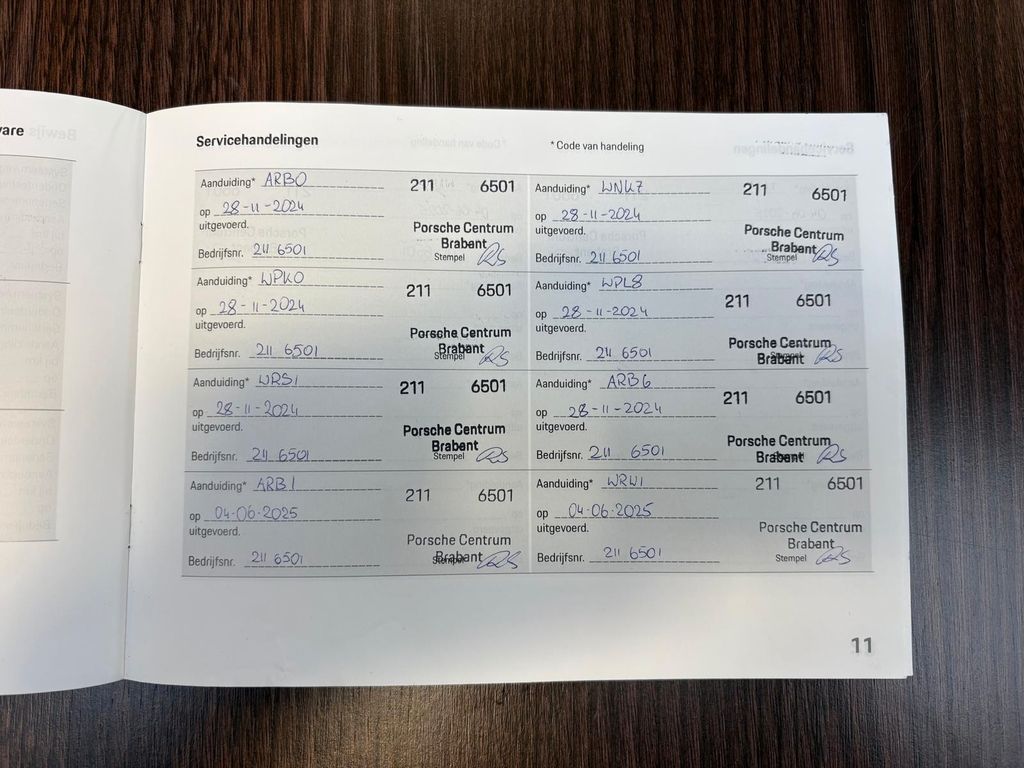 vare
Servicehandelingen
* Code van handeling
Aanduiding* ARB0
op 28-11-2024
uitgevoerd.
Bedrijfsnr. 211 6501
211 6501
Porsche Centrum
Brabant
Stempel
Aanduiding* WNK7
op 28-11-2024
uitgevoerd.
Bedrijfsnr. 211 6501
211 6501
Porsche Centrum
Brabant
Stempel
Aanduiding* WPK0
op 28-11-2024
uitgevoerd.
Bedrijfsnr. 211 6501
211 6501
Porsche Centrum
Brabant
Stempel
Aanduiding* WPL8
op 28-11-2024
uitgevoerd.
Bedrijfsnr. 211 6501
211 6501
Porsche Centrum
Brabant
Stempel
Aanduiding* WRS1
op 28-11-2024
uitgevoerd.
Bedrijfsnr. 211 6501
211 6501
Porsche Centrum
Brabant
Stempel
Aanduiding* ARB6
op 28-11-2024
uitgevoerd.
Bedrijfsnr. 211 6501
211 6501
Porsche Centrum
Brabant
Stempel
Aanduiding* ARB1
op 04-06-2025
uitgevoerd.
Bedrijfsnr. 211 6501
211 6501
Porsche Centrum
Brabant
Stempel
Aanduiding* WRW1
op 04-06-2025
uitgevoerd.
Bedrijfsnr. 211 6501
211 6501
Porsche Centrum
Brabant
Stempel
11